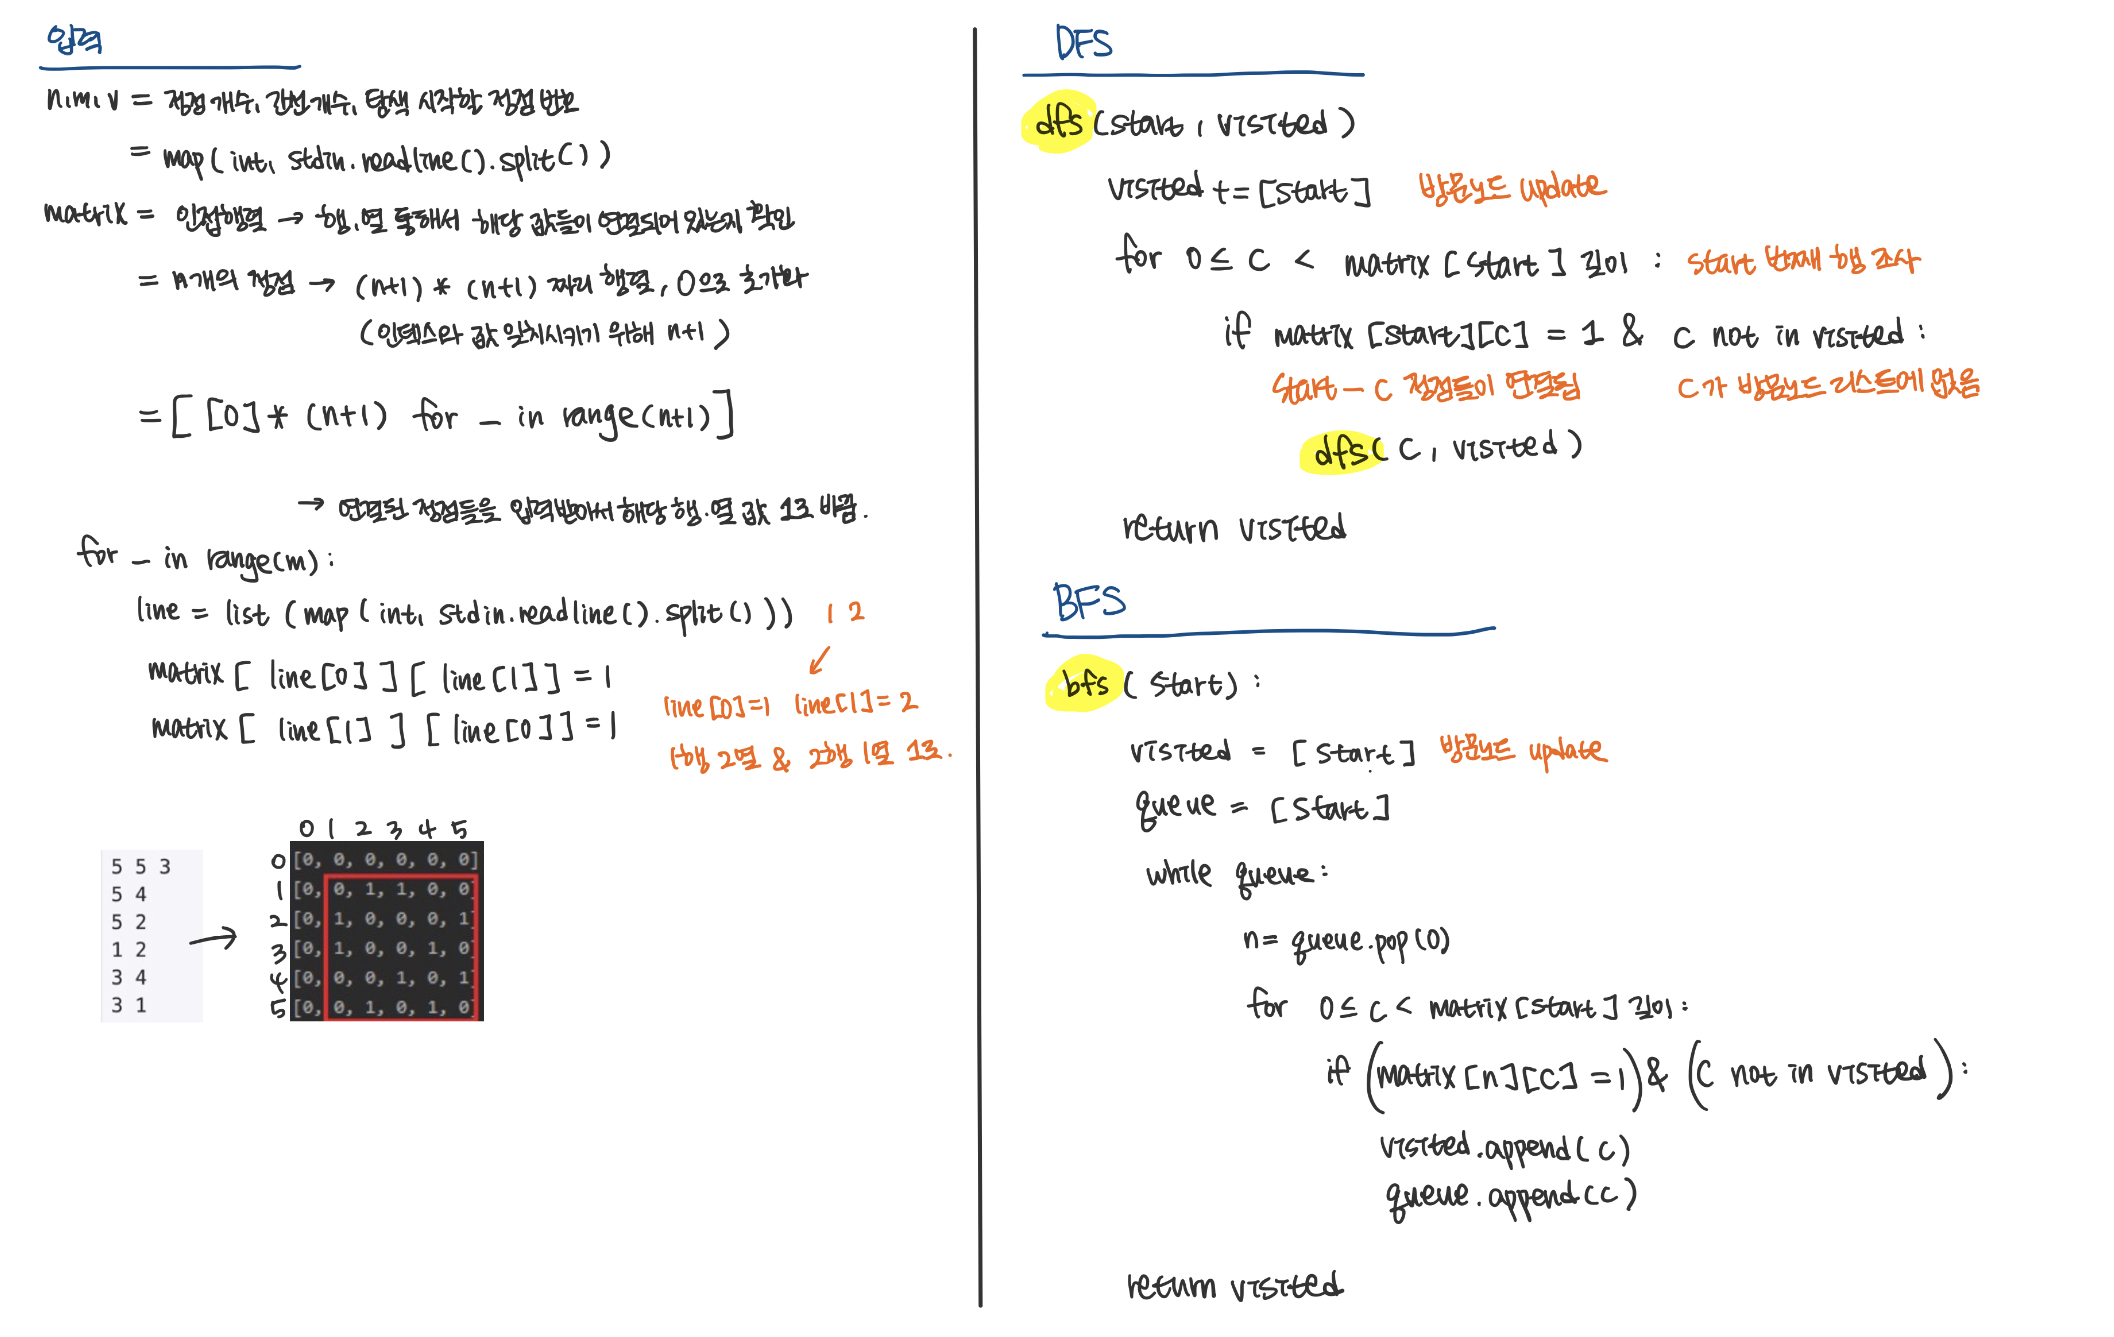 입력
n, m, v = 정점 개수, 간선 개수, 탐색 시작할 정점 번호
= map(int, stdin.readline().split())
matrix = 인접행렬 → 행, 열 통해서 해당 값들이 연결되어 있는지 확인
= n개의 정점 → (n+1) * (n+1) 짜리 행렬, 0으로 초기화
(인덱스와 값 일치시키기 위해 n+1)
= [ [0] * (n+1) for _ in range(n+1) ]
→ 연결된 정점들을 입력받아서 해당 행·열 값 1로 바꿈.
for _ in range(m):
line = list (map(int, stdin.readline().split())) 1 2
↙
matrix [ line[0] ] [ line[1] ] = 1
line[0]=1 line[1]=2
matrix [ line[1] ] [ line[0] ] = 1
1행 2열 & 2행 1열 1로.
5 5 3
5 4
5 2
1 2
3 4
3 1
→
0 1 2 3 4 5
0 [0, 0, 0, 0, 0, 0]
1 [0, 0, 1, 1, 0, 0]
2 [0, 1, 0, 0, 0, 1]
3 [0, 1, 0, 0, 1, 0]
4 [0, 0, 0, 1, 0, 1]
5 [0, 0, 1, 0, 1, 0]
DFS
dfs (start, visited)
visited += [start] 방문노드 update
for 0 ≤ c < matrix [start] 길이 : start 번째 행 조사
if matrix [start][c] = 1 & c not in visited :
start – c 정점들이 연결됨 c가 방문노드 리스트에 없음
dfs( c, visited )
return visited
BFS
bfs ( start) :
visited = [start] 방문노드 update
queue = [start]
while queue :
n = queue.pop(0)
for 0 ≤ c < matrix[start] 길이 :
if (matrix [n][c] = 1) & (c not in visited) :
visited.append(c)
queue.append(c)
return visited